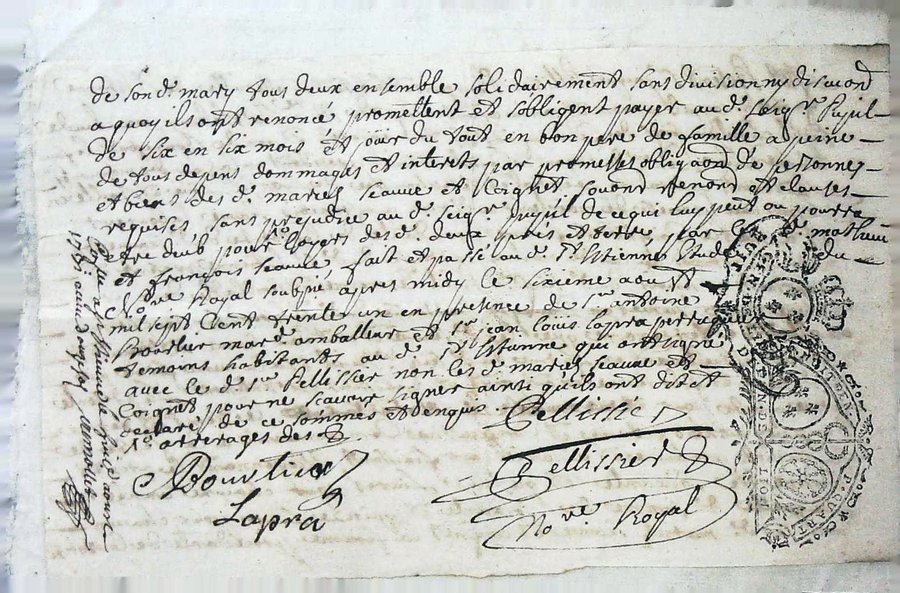 de sond. mary tous deux ensemble solidairement sans division ny discuond
a quoy ils ont renoncé promettent et sobligent payer au d. seigr. Pupil
de six en six mois et jouir du tout en bon pere de famille a peine
de tous depens dommages et interets par promesses obligaond de personnes
et biens des d. mariés seauve et Coignet soumond renond et clauses
requises sans prejudice au d. seigr. pupil de ce qui luy peut ou pourra
etre deub pour loyers des d. deux prés et terre par le mathieu
et françois seauve, fait et passé au d. St. Estienne Etude du
No.re Royal soubné apres midy le sixieme aoust
mil sept cent trente un en presence de sr. antoine
Bourlier mard. amballeur et sr. jean Louis Lapra
temoins habitants au d. St. Etienne qui ont signé
avec le d. sr. Pellissier non les d. mariés seauve et
Coignet pour ne scavoir signer ainsi quils ont dit et
declaré de ce sommes et denqus.
1o. arrerages des
Pellissié
Bourlier
Pellissier
Lapra
No.re Royal
a St. Etienne le aoust
1731
GEN DE
LION
P. QUART